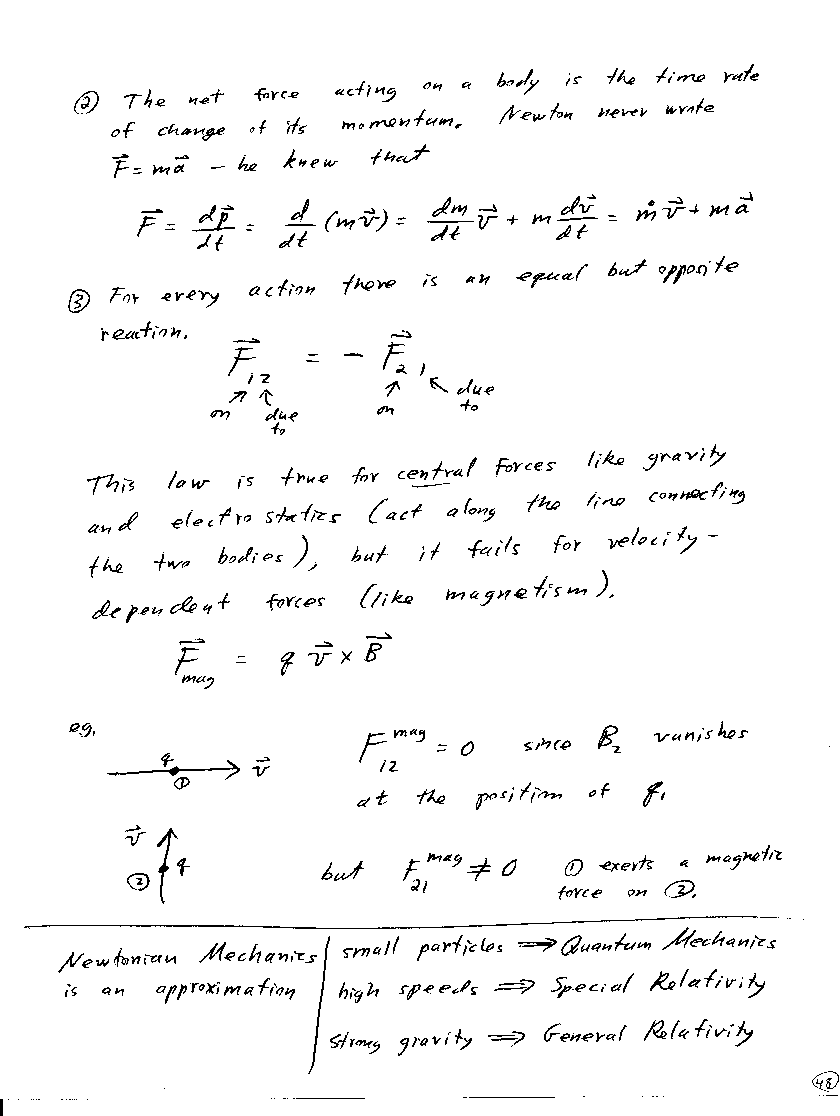 ② The net force acting on a body is the time rate
of change of its momentum. Newton never wrote
F⃗ = ma⃗ – he knew that
F⃗ = dp⃗/dt = d/dt (mv⃗) = dm/dt v⃗ + m dv⃗/dt = ṁv⃗ + ma⃗
③ For every action there is an equal but opposite
reaction.
F⃗₁₂ = – F⃗₂₁
on due to on due to
This law is true for central forces like gravity
and electrostatics (act along the line connecting
the two bodies), but it fails for velocity-
dependent forces (like magnetism).
F⃗mag = q v⃗ × B⃗
eg.
q ① v⃗
F₁₂^mag = 0 since B₂ vanishes
at the position of q₁
v⃗ ② q
but F₂₁^mag ≠ 0 ① exerts a magnetic
force on ②.
Newtonian Mechanics
is an approximation
small particles ⇒ Quantum Mechanics
high speeds ⇒ Special Relativity
strong gravity ⇒ General Relativity
48